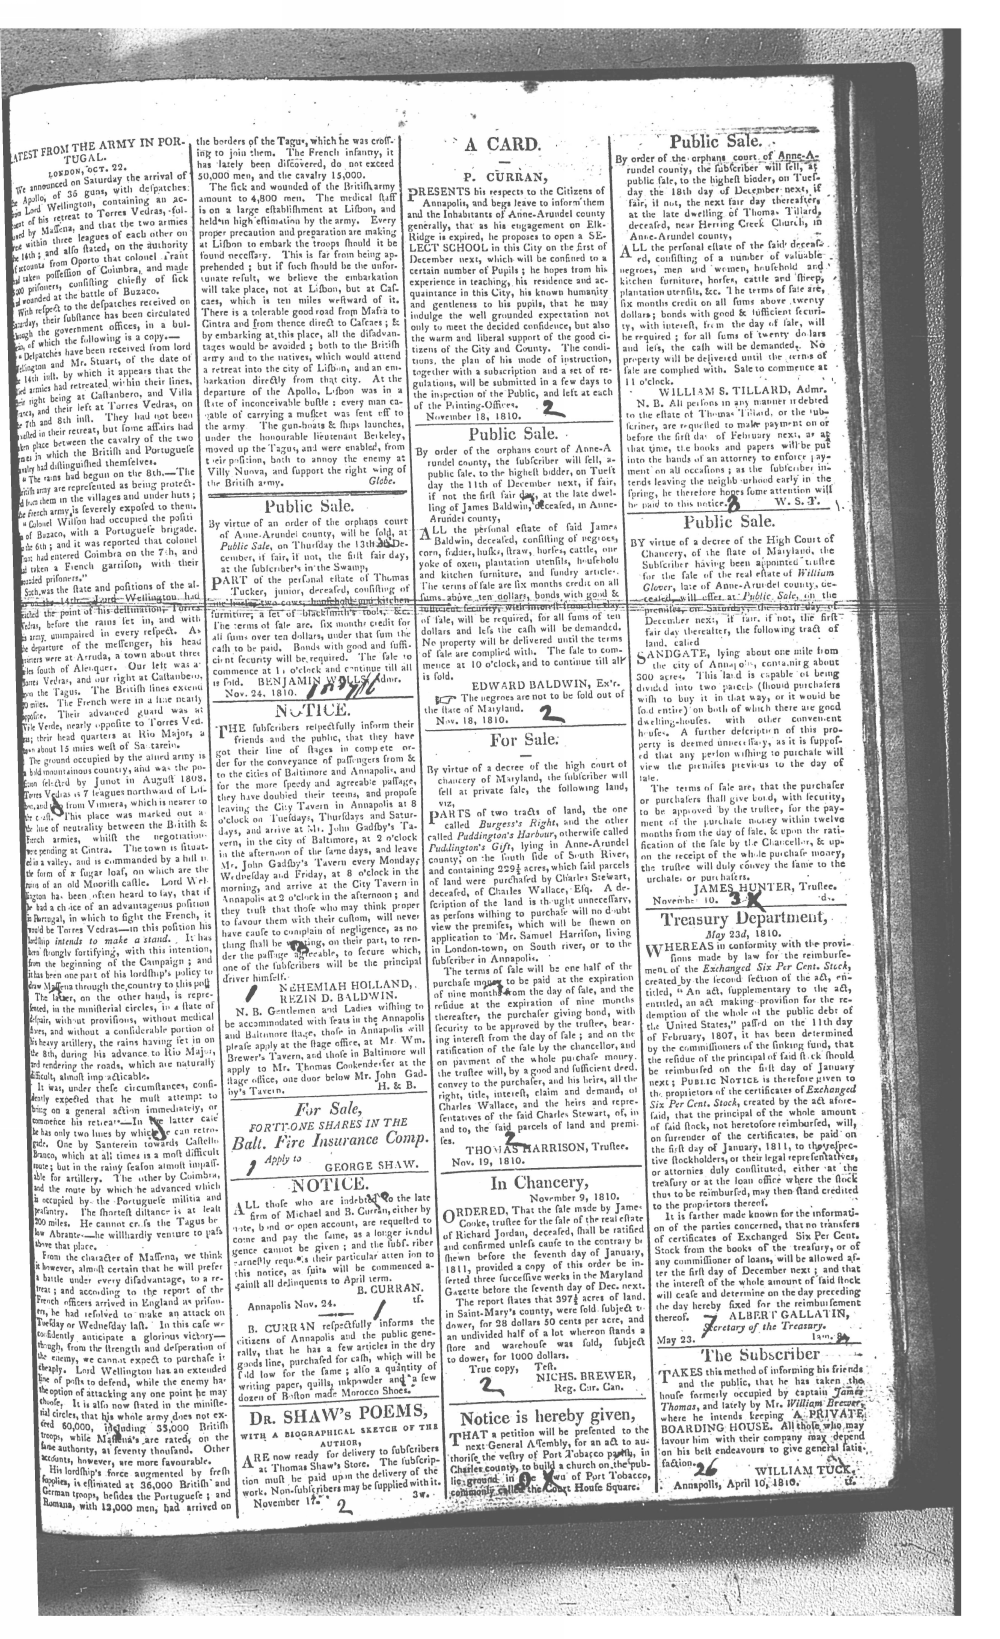 LATEST FROM THE ARMY IN POR-
TUGAL.
LONDON, OCT. 22.
We announced on Saturday the arrival of
the Apollo, of 36 guns, with despatches
from Lord Wellington, containing an ac-
count of his retreat to Torres Vedras, fol-
lowed by Massena, and that the two armies
were within three leagues of each other on
the 14th; and also stated, on the authority
of accounts from Oporto that colonel Trant
had taken possession of Coimbra, and made
prisoners, consisting chiefly of sick
and wounded at the battle of Buzaco.
With respect to the despatches received on
Saturday, their substance has been circulated
through the government offices, in a bul-
letin, of which the following is a copy.—
"Despatches have been received from lord
Wellington and Mr. Stuart, of the date of
the 14th inst. by which it appears that the
allied armies had retreated within their lines,
their right being at Castanbero, and Villa
Franca, and their left at Torres Vedras, on
the 7th and 8th inst. They had not been
molested in their retreat, but some affairs had
taken place between the cavalry of the two
armies in which the British and Portuguese
cavalry had distinguished themselves.
"The rains had begun on the 8th.—The
British army are represented as being protect-
ed from them in the villages and under huts;
the French army is severely exposed to them.
"Colonel Wilson had occupied the positi
of Bozaco, with a Portuguese brigade,
on the 6th; and it was reported that colonel
Trant had entered Coimbra on the 7th, and
had taken a French garrison, with their
wounded prisoners."
Such was the state and positions of the al-
lies on the 14th. Lord Wellington had
reached the point of his destination, Torres
Vedras, before the rains set in, and with
his army, unimpaired in every respect. At
the departure of the messenger, his head
quarters were at Arruda, a town about three
miles south of Alenquer. Our left was a
Santa Vedras, and our right at Castanbero,
on the Tagus. The British lines extend
20 miles. The French were in a line nearly
opposite. Their advanced guard was at
Ville Verde, nearly opposite to Torres Ved.
ras; their head quarters at Rio Major, a
town about 15 miles west of Santarein.
The ground occupied by the allied army is
a bold mountainous country, and was the po-
sition selected by Junot in August 1808.
Torres Vedras is 7 leagues northward of Lis-
bon, and from Vimiera, which is nearer to
the coast. This place was marked out a
the line of neutrality between the British &
French armies, whilst the negotiation
were pending at Cintra. The town is situat-
ed in a valley, and is commanded by a hill in
the form of a sugar loaf, on which are the
ruins of an old Moorish castle. Lord Wel-
lington has been often heard to say, that if
he had a choice of an advantageous position
in Portugal, in which to fight the French, it
would be Torres Vedras—in this position his
lordship intends to make a stand. It has
been strongly fortifying, with this intention,
from the beginning of the Campaign; and
it has been one part of his lordship's policy to
draw Massena through the country to this post
The latter, on the other hand, is repre-
sented, in the ministerial circles, in a state of
despair, without provisions, without medical
stores, and without a considerable portion of
his heavy artillery, the rains having set in on
the 8th, during his advance to Rio Major,
and rendering the roads, which are naturally
difficult, almost impracticable
It was, under these circumstances, confi-
dently expected that he must attempt to
bring on a general action immediately, or
commence his retreat—In the latter case
he has only two lines by which he can retro-
grade. One by Santerein towards Castello
Branco, which at all times is a most difficult
route; but in the rainy season almost impass-
able for artillery. The other by Coimbra,
and the route by which he advanced which
is occupied by the Portuguese militia and
peasantry. The shortest distance is at least
200 miles. He cannot cross the Tagus be
low Abrante—he will hardly venture to pass
above that place.
From the character of Massena, we think
it however, almost certain that he will prefer
a battle under every disadvantage, to a re-
treat; and according to the report of the
French officers arrived in England as prison-
ers, he had resolved to make an attack on
Tuesday or Wednesday last. In this case we
confidently anticipate a glorious victory—
though, from the strength and desperation of
the enemy, we cannot expect to purchase it
cheaply. Lord Wellington has an extended
line of posts to defend, while the enemy has
the option of attacking any one point he may
choose. It is also now stated in the ministe-
rial circles, that his whole army does not ex-
ceed 60,000, including 35,000 British
troops, while Massena's are rated, on the
same authority, at seventy thousand. Other
accounts, however, are more favourable.
His lordship's force augmented by fresh
supplies, is estimated at 36,000 British and
German troops, besides the Portuguese; and
Romana, with 12,000 men, had arrived on
the borders of the Tagus, which he was cross-
ing to join them. The French infantry, it
has lately been discovered, do not exceed
50,000 men, and the cavalry 15,000.
The sick and wounded of the British army
amount to 4,800 men. The medical staff
is on a large establishment at Lisbon, and
held in high estimation by the army. Every
proper precaution and preparation are making
at Lisbon to embark the troops should it be
found necessary. This is far from being ap-
prehended; but if such should be the unfor-
tunate result, we believe the embarkation
will take place, not at Lisbon, but at Cas-
caes, which is ten miles westward of it.
There is a tolerable good road from Mafra to
Cintra and from thence direct to Cascaes; &
by embarking at this place, all the disadvan-
tages would be avoided both to the British
army and to the natives, which would attend
a retreat into the city of Lisbon, and an em-
barkation directly from that city. At the
departure of the Apollo, Lisbon was in a
state of inconceivable bustle: every man ca-
pable of carrying a musket was sent off to
the army The gun-boats & ships launches,
under the honourable lieutenant Berkeley,
moved up the Tagus, and were enabled, from
their position, both to annoy the enemy at
Villy Nuova, and support the right wing of
the British army. Globe.
Public Sale.
By virtue of an order of the orphans court
of Anne-Arundel county, will be sold, at
Public Sale, on Thursday the 13th De-
cember, if fair, if not, the first fair day,
at the subscriber's in the Swamp,
PART of the personal estate of Thomas
Tucker, junior, deceased, consisting of
one horse, two cows, household and kitchen
furniture, a set of blacksmith's tools, &c.
The terms of sale are, six months credit for
all sums over ten dollars, under that sum the
cash to be paid. Bonds with good and suffi-
cient security will be required. The sale to
commence at 11 o'clock and continue till all
is sold. BENJAMIN WELLS, Admr.
Nov. 24, 1810.
NOTICE.
THE subscribers respectfully inform their
friends and the public, that they have
got their line of stages in complete or-
der for the conveyance of passengers from &
to the cities of Baltimore and Annapolis, and
for the more speedy and agreeable passage,
they have doubled their teems, and propose
leaving the City Tavern in Annapolis at 8
o'clock on Tuesdays, Thursdays and Satur-
days, and arrive at Mr. John Gadsby's Ta-
vern, in the city of Baltimore, at 2 o'clock
in the afternoon of the same days, and leave
Mr. John Gadsby's Tavern every Monday,
Wednesday and Friday, at 8 o'clock in the
morning, and arrive at the City Tavern in
Annapolis at 2 o'clock in the afternoon; and
they trust that those who may think proper
to favour them with their custom, will never
have cause to complain of negligence, as no
thing shall be wanting, on their part, to ren-
der the passage agreeable, to secure which,
one of the subscribers will be the principal
driver himself.
NEHEMIAH HOLLAND,
REZIN D. BALDWIN.
N. B. Gentlemen and Ladies wishing to
be accommodated with seats in the Annapolis
and Baltimore stage, those in Annapolis will
please apply at the stage office, at Mr. Wm.
Brewer's Tavern, and those in Baltimore will
apply to Mr. Thomas Cookenderfer at the
stage office, one door below Mr. John Gad-
by's Tavern. H. & B.
For Sale,
FORTY-ONE SHARES IN THE
Balt. Fire Insurance Comp.
Apply to
GEORGE SHAW.
NOTICE.
ALL those who are indebted to the late
firm of Michael and B. Curran, either by
note, bond or open account, are requested to
come and pay the same, as a longer indul
gence cannot be given; and the subscriber
earnestly requests their particular attention to
this notice, as suits will be commenced a-
gainst all delinquents to April term.
B. CURRAN.
Annapolis Nov. 24. tf.
B. CURRAN respectfully informs the
citizens of Annapolis and the public gene-
rally, that he has a few articles in the dry
goods line, purchased for cash, which will be
sold low for the same; also a quantity of
writing paper, quills, inkpowder and a few
dozen of Boston made Morocco Shoes.
DR. SHAW's POEMS,
WITH A BIOGRAPHICAL SKETCH OF THE
AUTHOR,
ARE now ready for delivery to subscribers
at Thomas Shaw's Store. The subscrip-
tion must be paid upon the delivery of the
work. Non-subscribers may be supplied with it.
November 17. 2 3w.
A CARD.
P. CURRAN,
PRESENTS his respects to the Citizens of
Annapolis, and begs leave to inform them
and the Inhabitants of Anne-Arundel county
generally, that as his engagement on Elk-
Ridge is expired, he proposes to open a SE-
LECT SCHOOL in this City on the first of
December next, which will be confined to a
certain number of Pupils; he hopes from his
experience in teaching, his residence and ac-
quaintance in this City, his known humanity
and gentleness to his pupils, that he may
indulge the well grounded expectation not
only to meet the decided confidence, but also
the warm and liberal support of the good ci-
tizens of the City and County. The condi-
tions, the plan of his mode of instruction,
together with a subscription and a set of re-
gulations, will be submitted in a few days to
the inspection of the Public, and left at each
of the Printing-Offices. 2
November 18, 1810.
Public Sale.
By order of the orphans court of Anne-A
rundel county, the subscriber will sell, at
public sale, to the highest bidder, on Tuest
day the 11th of December next, if fair,
if not the first fair day, at the late dwel-
ling of James Baldwin, deceased, in Anne-
Arundel county,
ALL the personal estate of said James
Baldwin, deceased, consisting of negroes,
corn, fodder, husks, straw, horses, cattle, one
yoke of oxen, plantation utensils, household
and kitchen furniture, and sundry article.
The terms of sale are six months credit on all
sums above ten dollars, bonds with good &
sufficient security, with interest from the day
of sale, will be required, for all sums of ten
dollars and less the cash will be demanded.
No property will be delivered until the terms
of sale are complied with. The sale to com-
mence at 10 o'clock, and to continue till all
is sold.
EDWARD BALDWIN, Ex'r.
☞ The negroes are not to be sold out of
the state of Maryland.
Nov. 18, 1810. 2
For Sale.
By virtue of a decree of the high court of
chancery of Maryland, the subscriber will
sell at private sale, the following land,
viz.
PARTS of two tracts of land, the one
called Burgess's Right, and the other
called Puddington's Harbour, otherwise called
Puddington's Gift, lying in Anne-Arundel
county, on the south side of South River,
and containing 229½ acres, which said parcels
of land were purchased by Charles Stewart,
deceased, of Charles Wallace, Esq. A de-
scription of the land is thought unnecessary,
as persons wishing to purchase will no doubt
view the premises, which will be shewn on
application to Mr. Samuel Harrison, living
in London-town, on South river, or to the
subscriber in Annapolis.
The terms of sale will be one half of the
purchase money to be paid at the expiration
of nine months from the day of sale, and the
residue at the expiration of nine months
thereafter, the purchaser giving bond, with
security to be approved by the trustee, bear-
ing interest from the day of sale; and on the
ratification of the sale by the chancellor, and
on payment of the whole purchase money.
the trustee will, by a good and sufficient deed.
convey to the purchaser, and his heirs, all the
right, title, interest, claim and demand, of
Charles Wallace, and the heirs and repre-
sentatives of the said Charles Stewart, of, in
and to, the said parcels of land and premi-
ses. 2
THOMAS HARRISON, Trustee.
Nov. 19, 1810.
In Chancery,
November 9, 1810.
ORDERED, That the sale made by James
Cooke, trustee for the sale of the real estate
of Richard Jordan, deceased, shall be ratified
and confirmed unless cause to the contrary be
shewn before the seventh day of January,
1811, provided a copy of this order be in-
serted three successive weeks in the Maryland
Gazette before the seventh day of Dec. next.
The report states that 397¾ acres of land,
in Saint-Mary's county, were sold subject to
dower, for 28 dollars 50 cents per acre, and
an undivided half of a lot whereon stands a
store and warehouse was sold, subject
to dower, for 1000 dollars.
True copy, Test.
2 NICHS. BREWER,
Reg. Cur. Can.
Notice is hereby given,
THAT a petition will be presented to the
next General Assembly, for an act to au-
thorise the vestry of Port Tobacco parish, in
Charles county, to build a church on the pub-
lic ground in the town of Port Tobacco,
commonly called the Court House Square.
Public Sale.
By order of the orphans court of Anne-A-
rundel county, the subscriber will sell, at
public sale, to the highest bidder, on Tues-
day the 18th day of December next, if
fair, if not, the next fair day thereafter,
at the late dwelling of Thomas Tillard,
deceased, near Herring Creek Church, in
Anne-Arundel county,
ALL the personal estate of the said deceas-
ed, consisting of a number of valuable
negroes, men and women, household and
kitchen furniture, horses, cattle and sheep,
plantation utensils, &c. The terms of sale are,
six months credit on all sums above twenty
dollars; bonds with good & sufficient securi-
ty, with interest, from the day of sale, will
be required; for all sums of twenty dollars
and less, the cash will be demanded. No
property will be delivered until the terms of
sale are complied with. Sale to commence at
11 o'clock.
WILLIAM S. TILLARD, Admr.
N. B. All persons in any manner indebted
to the estate of Thomas Tillard, or the sub-
scriber, are requested to make payment on or
before the first day of February next, as at
that time, the books and papers will be put
into the hands of an attorney to enforce pay-
ment on all occasions; as the subscriber in-
tends leaving the neighbourhood early in the
spring, he therefore hopes some attention will
be paid to this notice. 3 W. S. T.
Public Sale.
BY virtue of a decree of the High Court of
Chancery, of the state of Maryland, the
Subscriber having been appointed trustee
for the sale of the real estate of William
Glover, late of Anne-Arundel county, de-
ceased, will offer at Public Sale, on the
premises, on Saturday, the 15th day of
December next, if fair, if not, the first
fair day thereafter, the following tract of
land, called
SANDGATE, lying about one mile from
the city of Annapolis, containing about
300 acres. This land is capable of being
divided into two parcels (should purchasers
wish to buy it in that way, or it would be
sold entire) on both of which there are good
dwelling-houses, with other convenient
houses. A further description of this pro-
perty is deemed unnecessary, as it is suppos-
ed that any person wishing to purchase will
view the premises previous to the day of
sale.
The terms of sale are, that the purchaser
or purchasers shall give bond, with security,
to be approved by the trustee, for the pay-
ment of the purchase money within twelve
months from the day of sale, & upon the rati-
fication of the sale by the Chancellor, & up-
on the receipt of the whole purchase money,
the trustee will duly convey the same to the
purchaser or purchasers.
JAMES HUNTER, Trustee.
November 10. 3 X
Treasury Department,
May 23d, 1810.
WHEREAS in conformity with the provi-
sions made by law for the reimburse-
ment of the Exchanged Six Per Cent. Stock,
created by the second section of the act, en-
titled, "An act supplementary to the act,
entitled, an act making provision for the re-
demption of the whole of the public debt of
the United States," passed on the 11th day
of February, 1807, it has been determined
by the commissioners of the sinking fund, that
the residue of the principal of said stock should
be reimbursed on the first day of January
next; PUBLIC NOTICE is therefore given to
the proprietors of the certificates of Exchanged
Six Per Cent. Stock, created by the act afore-
said, that the principal of the whole amount
of said stock, not heretofore reimbursed, will,
on surrender of the certificates, be paid on
the first day of January, 1811, to the respec-
tive stockholders, or their legal representatives,
or attornies duly constituted, either at the
treasury or at the loan office where the stock
thus to be reimbursed, may then stand credited
to the proprietors thereof.
It is farther made known for the informati-
on of the parties concerned, that no transfers
of certificates of Exchanged Six Per Cent.
Stock from the books of the treasury, or of
any commissioner of loans, will be allowed af-
ter the first day of December next; and that
the interest of the whole amount of said stock
will cease and determine on the day preceding
the day hereby fixed for the reimbursement
thereof. 7 ALBERT GALLATIN,
Secretary of the Treasury.
May 23.
The Subscriber
TAKES this method of informing his friends
and the public, that he has taken the
house formerly occupied by captain James
Thomas, and lately by Mr. William Brewer,
where he intends keeping A PRIVATE
BOARDING HOUSE. All those who may
favour him with their company may depend
on his best endeavours to give general satis-
faction. 26
WILLIAM TUCK.
Annapolis, April 10, 1810. tf.